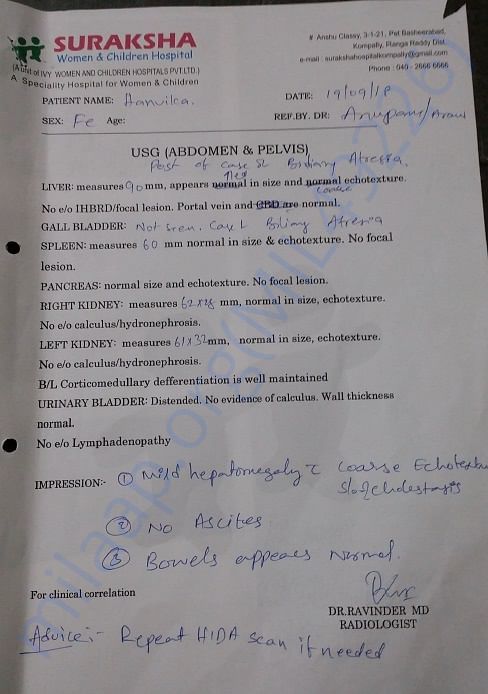 SURAKSHA
Women & Children Hospital
(A unit of IVY WOMEN AND CHILDREN HOSPITALS PVT.LTD.)
A Speciality Hospital for Women & Children
# Anshu Classy, 3-1-21, Pet Basheerabad,
Kompally, Ranga Reddy Dist.
e-mail : surakshahospitalkompally@gmail.com
Phone : 040 - 2666 6666
PATIENT NAME: Hanvika.
DATE: 19/09/18
SEX: Fe Age:
REF.BY. DR: Anupam/
USG (ABDOMEN & PELVIS)
Post of case Biliary Atresia.
LIVER: measures 90 mm, appears normal ↑led in size and normal coarse echotexture.
No e/o IHBRD/focal lesion. Portal vein and CBD are normal.
GALL BLADDER: Not seen. Biliary Atresia
SPLEEN: measures 60 mm normal in size & echotexture. No focal
lesion.
PANCREAS: normal size and echotexture. No focal lesion.
RIGHT KIDNEY: measures 62x28 mm, normal in size, echotexture.
No e/o calculus/hydronephrosis.
LEFT KIDNEY: measures 61x32mm, normal in size, echotexture.
No e/o calculus/hydronephrosis.
B/L Corticomedullary defferentiation is well maintained
URINARY BLADDER: Distended. No evidence of calculus. Wall thickness
normal.
No e/o Lymphadenopathy
IMPRESSION:- ① Mild hepatomegaly c̄ coarse Echotexture
S/o cholestasis
② No Ascites
③ Bowels appears Normal.
For clinical correlation
DR.RAVINDER MD
RADIOLOGIST
Advice:- Repeat HIDA scan if needed